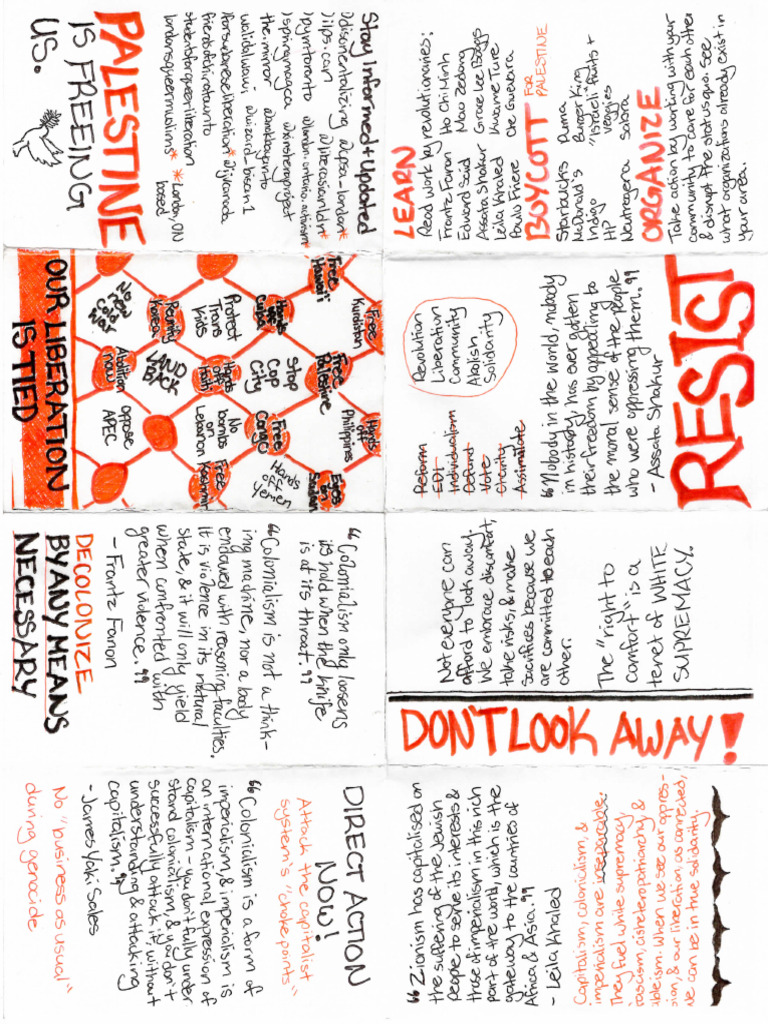 Stay Informed + Updated
@disorientalizing @psa-london*
@ilps.can @literasianldn*
@pymtoronto @london.ontario.activism*
@springmagca
@the.mirror
@wizard-bisan1
@forsudaneseliberation* @ijvcanada
studentsforqueerliberation
londonsqueermuslims*
*London, ON based
PALESTINE
IS FREEING
US.
LEARN
Read work by revolutionaries:
Frantz Fanon Ho Chi Minh
Edward Said Mao Zedong
Assata Shakur Grace Lee Boggs
Leila Khaled Kwame Ture
Paulo Friere Che Guevara
BOYCOTT FOR PALESTINE
Starbucks Puma
McDonald's Burger King
Indigo "Israeli" fruits +
HP veggies
Neutrogena Sabra
ORGANIZE
Take action by working with your
community to care for each other
& disrupt the status quo. See
what organizations already exist in
your area.
Free Hawai'i
Free Kurdistan
Hands off Cuba
Free Palestine
Hands off Philippines
Protect Trans Kids
Stop Cop City
Free Congo
Hands off Yemen
Eyes on Sudan
No New Cold War
Reunify Korea
LAND BACK
Hands off Haiti
No bombs on Lebanon
Free Kashmir
Abolition now
oppose APEC
OUR LIBERATION
IS TIED
Reform
EDI
Individualism
Defund
Vote
Charity
Assimilate
Revolution
Liberation
Community
Abolish
Solidarity
"Nobody in the world, nobody
in history, has ever gotten
their freedom by appealing to
the moral sense of the people
who were oppressing them."
- Assata Shakur
RESIST
"Colonialism only loosens
its hold when the knife
is at its throat."
"Colonialism is not a think-
ing machine, nor a body
endowed with reasoning faculties.
It is violence in its natural
state, & it will only yield
when confronted with
greater violence."
- Frantz Fanon
DECOLONIZE
BY ANY MEANS
NECESSARY
DON'T LOOK AWAY!
Not everyone can
afford to look away.
We embrace discomfort,
take risks, & make
sacrifices because we
are committed to each
other.
The "right to
comfort" is a
tenet of WHITE
SUPREMACY.
DIRECT ACTION
NOW!
Attack the capitalist
system's "choke points"
"Colonialism is a form of
imperialism, & imperialism is
an international expression of
capitalism - you don't fully under-
stand colonialism, & you don't
successfully attack it, without
understanding & attacking
capitalism."
- James Yaki Sales
No "business as usual"
during genocide
"Zionism has capitalised on
the suffering of the Jewish
people to serve its interests &
those of imperialism in this rich
part of the world, which is the
gateway to the countries of
Africa & Asia."
- Leila Khaled
Capitalism, colonialism, &
imperialism are inseparable.
They fuel white supremacy,
fascism, cisheteropatriarchy, &
ableism. When we see our oppres-
sion, & our liberation, as connected,
we can be in true solidarity.